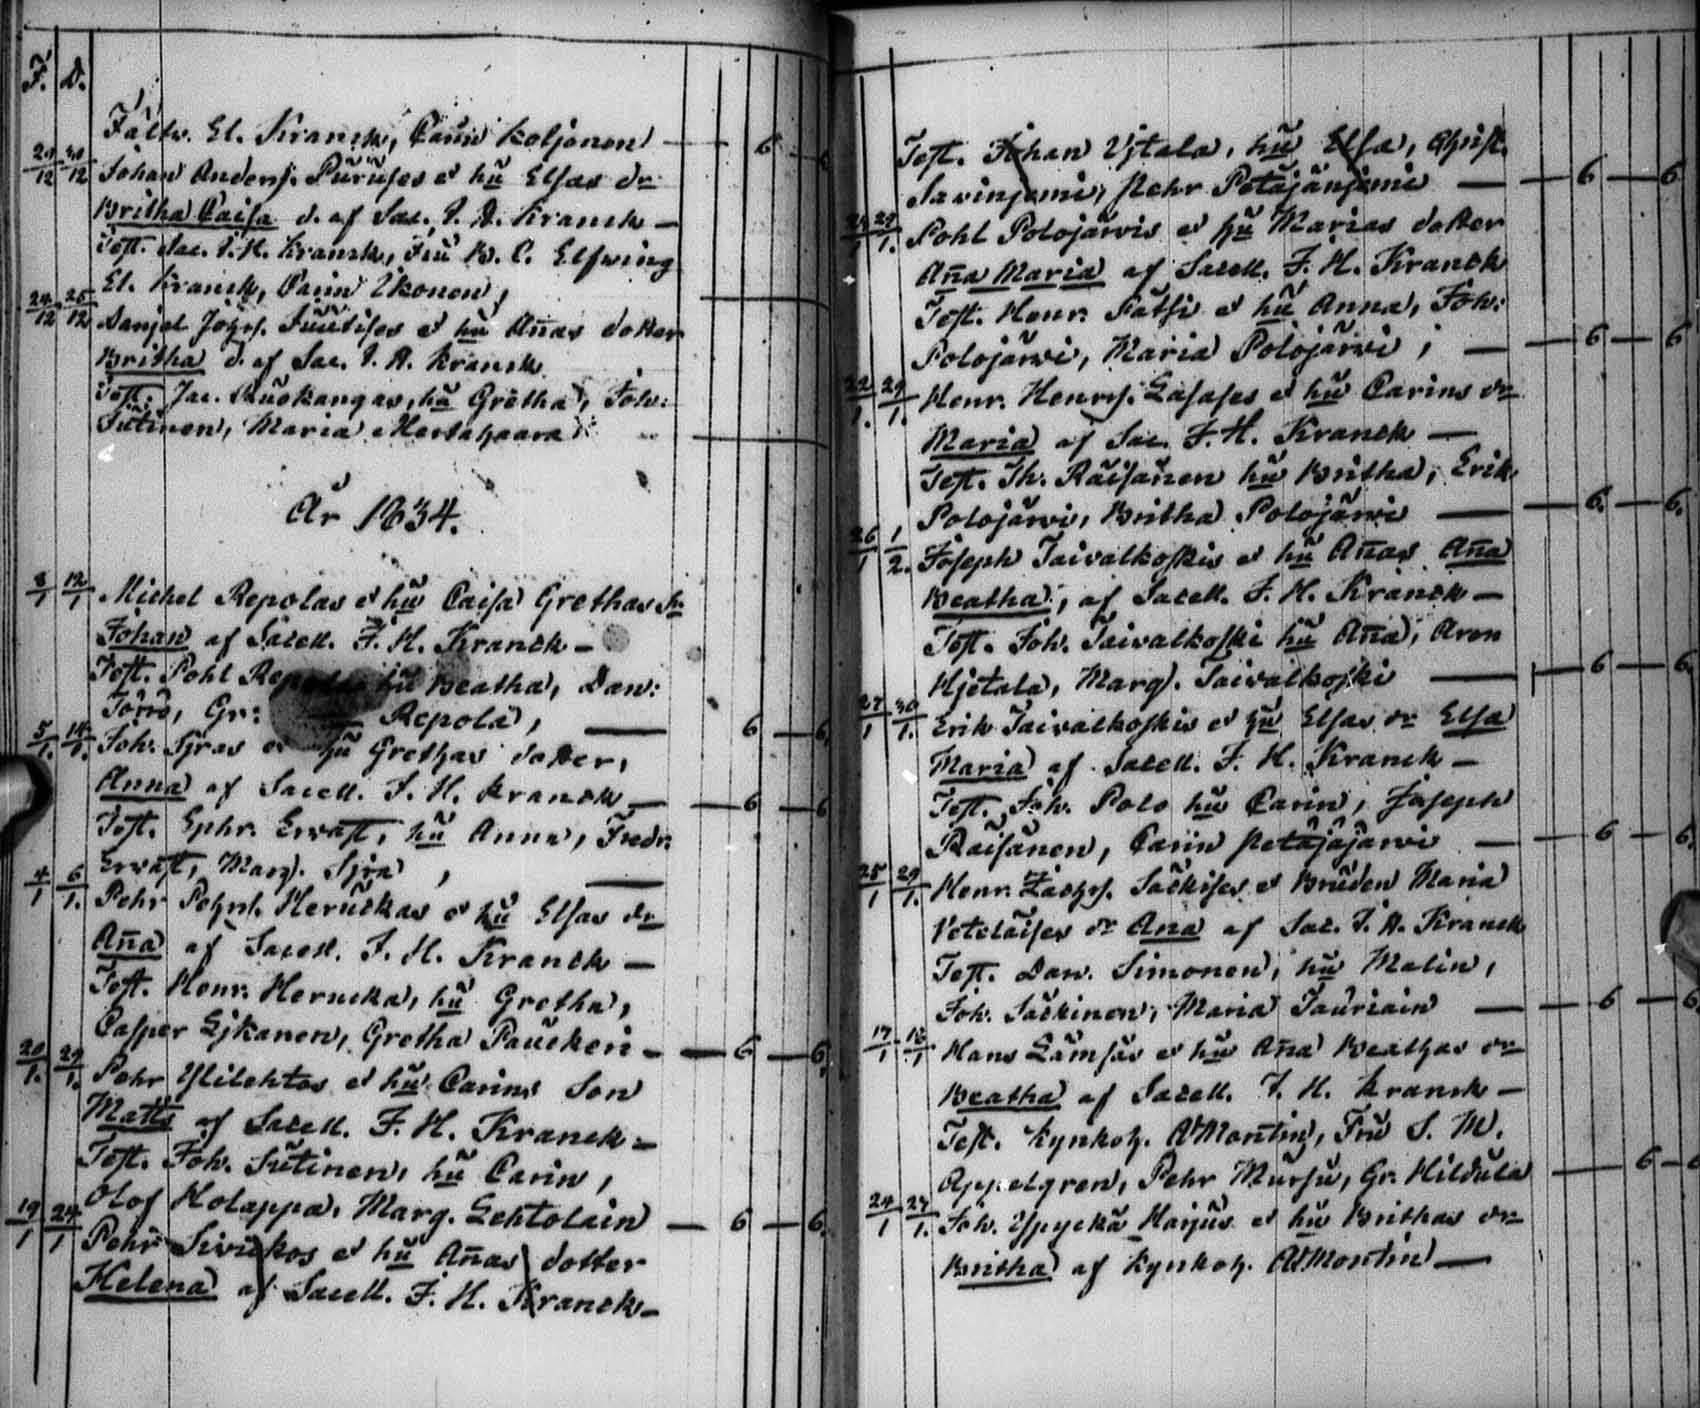 F. D.
Fältw. El. Kranck, Carin Koljonen — 6
20/12 30/12 Johan Anders. Puruses o hu Elsas dr
Britha Caisa d. af Sac. F. H. Kranck —
Test. Sac. F. H. Kranck, Fru B. C. Elfwing
El. Kranck, Carin Ikonen,
24/12 25/12 Daniel Johss. Suutises o hu Añas dotter
Britha d. af Sac. F. H. Kranck
Test. Jac. Ruokangas, hu Gretha, Joh:
Sutinen, Maria
År 1834.
8/1 12/1 Michel Repolas o hu Caisa Grethas
Johan af Sacell. F. H. Kranck —
Test. Pohl Repola hu Beatha, Dan:
Törrö, Gr: Repola, — 6 — 6
5/1. 14/1. Joh. Sjras o hu Grethas dotter,
Anna af Sacell. F. H. Kranck — 6 — 6
Test. Ephr. Ervast, hu Anna, Fredr.
Ervast, Marg. Sjra, —
4/1 6/1. Pehr Pehrs. Heruckas o hu Elsas dr
Aña af Sacell. F. H. Kranck —
Test. Henr. Herucka, hu Gretha,
Casper Lijkanen, Gretha Pauckeri — 6 — 6
20/1. 29/1. Pehr Ylilehtos o hu Carins Son
Matts af Sacell. F. H. Kranck —
Test. Joh. Sutinen, hu Carin,
Olof Holappa, Marg. Lehtolain — 6 — 6
19/1 24/1 Pehr Sivukos o hu Añas dotter
Helena af Sacell. F. H. Kranck —
Test. Johan Ujtala, hu Elsa, Christ.
Savinjemi, Pehr Petäjänjemi — 6 — 6
24/1 29/1. Pohl Polojärvis o hu Marias dotter
Aña Maria af Sacell. F. H. Kranck
Test. Henr. Fätsi o hu Anna, Joh:
Polojärvi, Maria Polojärvi, — 6 — 6
22/1. 29/1. Henr. Henrss. Lasases o hu Carins dr
Maria af Sac. F. H. Kranck —
Test. Th. Räisänen hu Britha, Erik
Polojärvi, Britha Polojärvi — 6. — 6.
26/1 1/2. Joseph Taivalkoskis o hu Añas Aña
Beatha, af Sacell. F. H. Kranck —
Test. Joh. Taivalkoski hu Aña, Aron
Hjetala, Marg. Taivalkoski — 6 — 6
27/1 30/1. Erik Taivalkoskis o hu Elsas dr Elsa
Maria af Sacell. F. H. Kranck —
Test. Joh. Polo hu Carin, Joseph
Räisänen, Carin Petäjäjärvi — 6 — 6.
25/1 29/1. Henr. Zachrs. Säckises o Bruden Maria
Veteläises dr Ana af Sac. F. H. Kranck
Test. Dan. Simonen, hu Malin,
Joh. Säckinen, Maria Tauriain — 6 — 6
17/1 18/1 Hans Lämsäs o hu Aña Beathas dr
Beatha af Sacell. F. H. Kranck —
Test. Kyrkoh. AMontin, Fru S. M.
Appelgren, Pehr Mursu, Gr. Hildula — 6 — 6
24/1 27/1. Joh. Yspyckä Harjus o hu Brithas dr
Britha af Kyrkoh. AMontin —